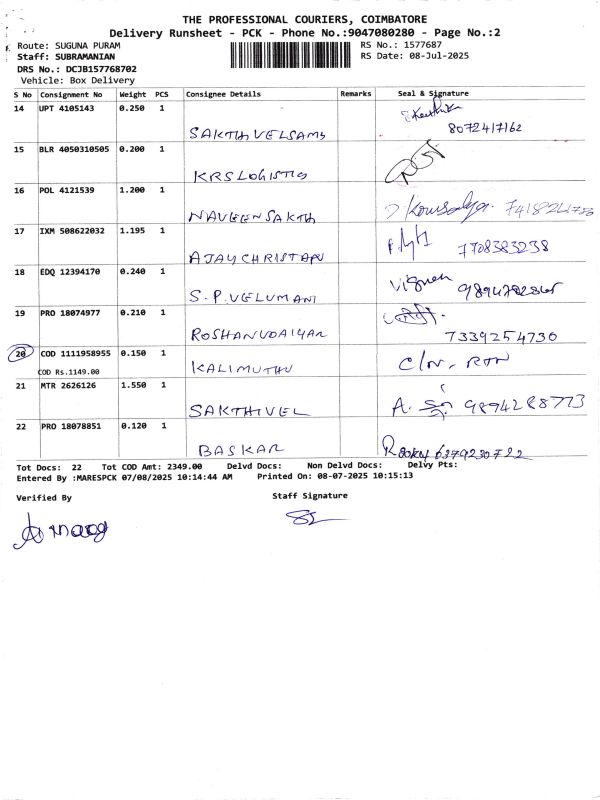 THE PROFESSIONAL COURIERS, COIMBATORE
Delivery Runsheet - PCK - Phone No.:9047080280 - Page No.:2
Route: SUGUNA PURAM
RS No.: 1577687
Staff: SUBRAMANIAN
RS Date: 08-Jul-2025
DRS No.: DCJB157768702
Vehicle: Box Delivery
S No Consignment No Weight PCS Consignee Details Remarks Seal & Signature
14 UPT 4105143 0.250 1
SAKTHIVELSAMY 8072417162
15 BLR 4050310505 0.200 1
KRS LOGISTIS
16 POL 4121539 1.200 1
NAVEEN SAKTH
17 IXM 508622032 1.195 1
AJAY CHRISTAPU 7708383238
18 EDQ 12394170 0.240 1 Vignesh
S.P.VELUMANI
19 PRO 18074977 0.210 1
ROSHANUDAIYAR 7339254730
20 COD 1111958955 0.150 1 C/N - RTN
COD Rs.1149.00 KALIMUTHU
21 MTR 2626126 1.550 1
SAKTHIVEL A. 9894288773
22 PRO 18078851 0.120 1
BASKAR 6379230722
Tot Docs: 22 Tot COD Amt: 2349.00 Delvd Docs: Non Delvd Docs: Delvy Pts:
Entered By :MARESPCK 07/08/2025 10:14:44 AM Printed On: 08-07-2025 10:15:13
Verified By Staff Signature